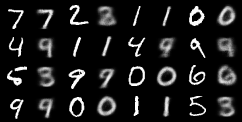 7 7 2 3 1 1 0 0
4 9 1 1 4 9 9 9
5 3 9 9 0 0 6 6
9 9 0 0 1 1 5 3